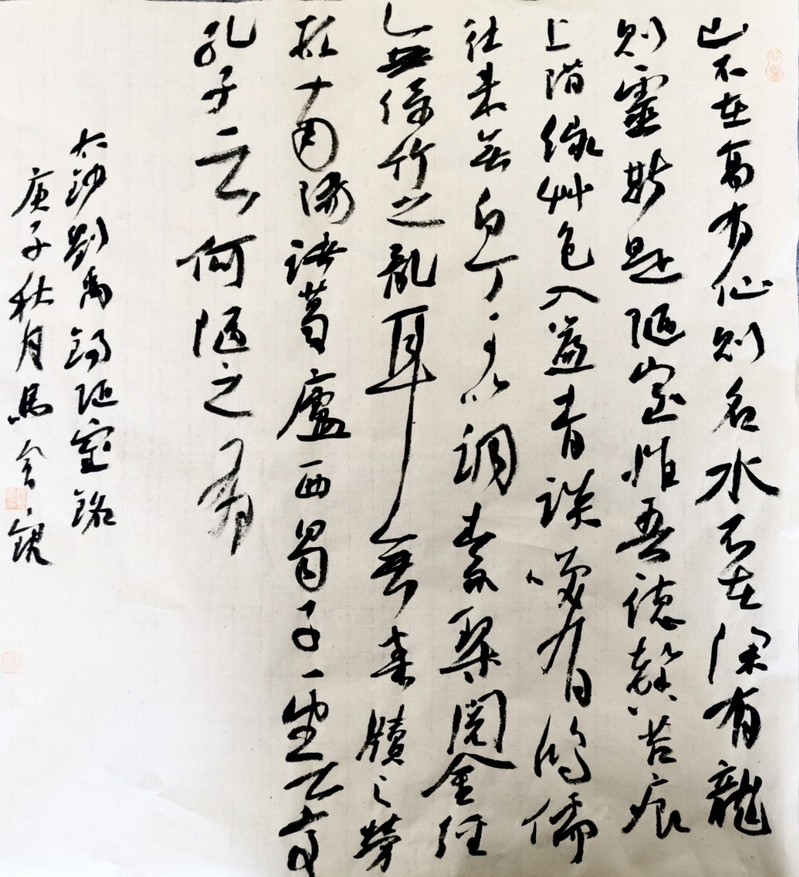 山不在高有仙则名水不在深有龍
则靈斯是陋室惟吾德馨苔痕
上階綠艸色入簾青談笑有鴻儒
往来無白丁可以調素琴閱金經
無絲竹之亂耳無案牘之勞
形南陽諸葛廬西蜀子雲亭
孔子云何陋之有
右錄劉禹錫陋室銘
庚子秋月馬